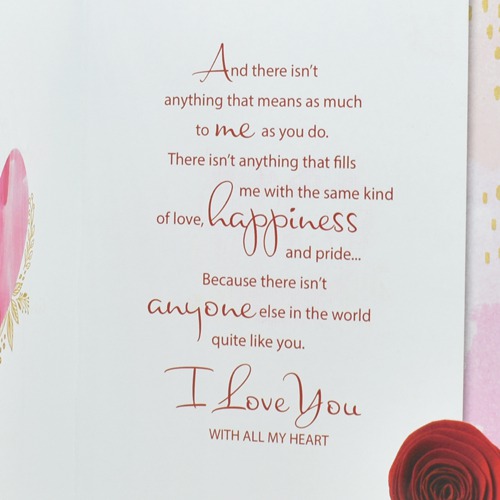 And there isn't
anything that means as much
to me as you do.
There isn't anything that fills
me with the same kind
of love, happiness
and pride...
Because there isn't
anyone else in the world
quite like you.
I Love You
WITH ALL MY HEART